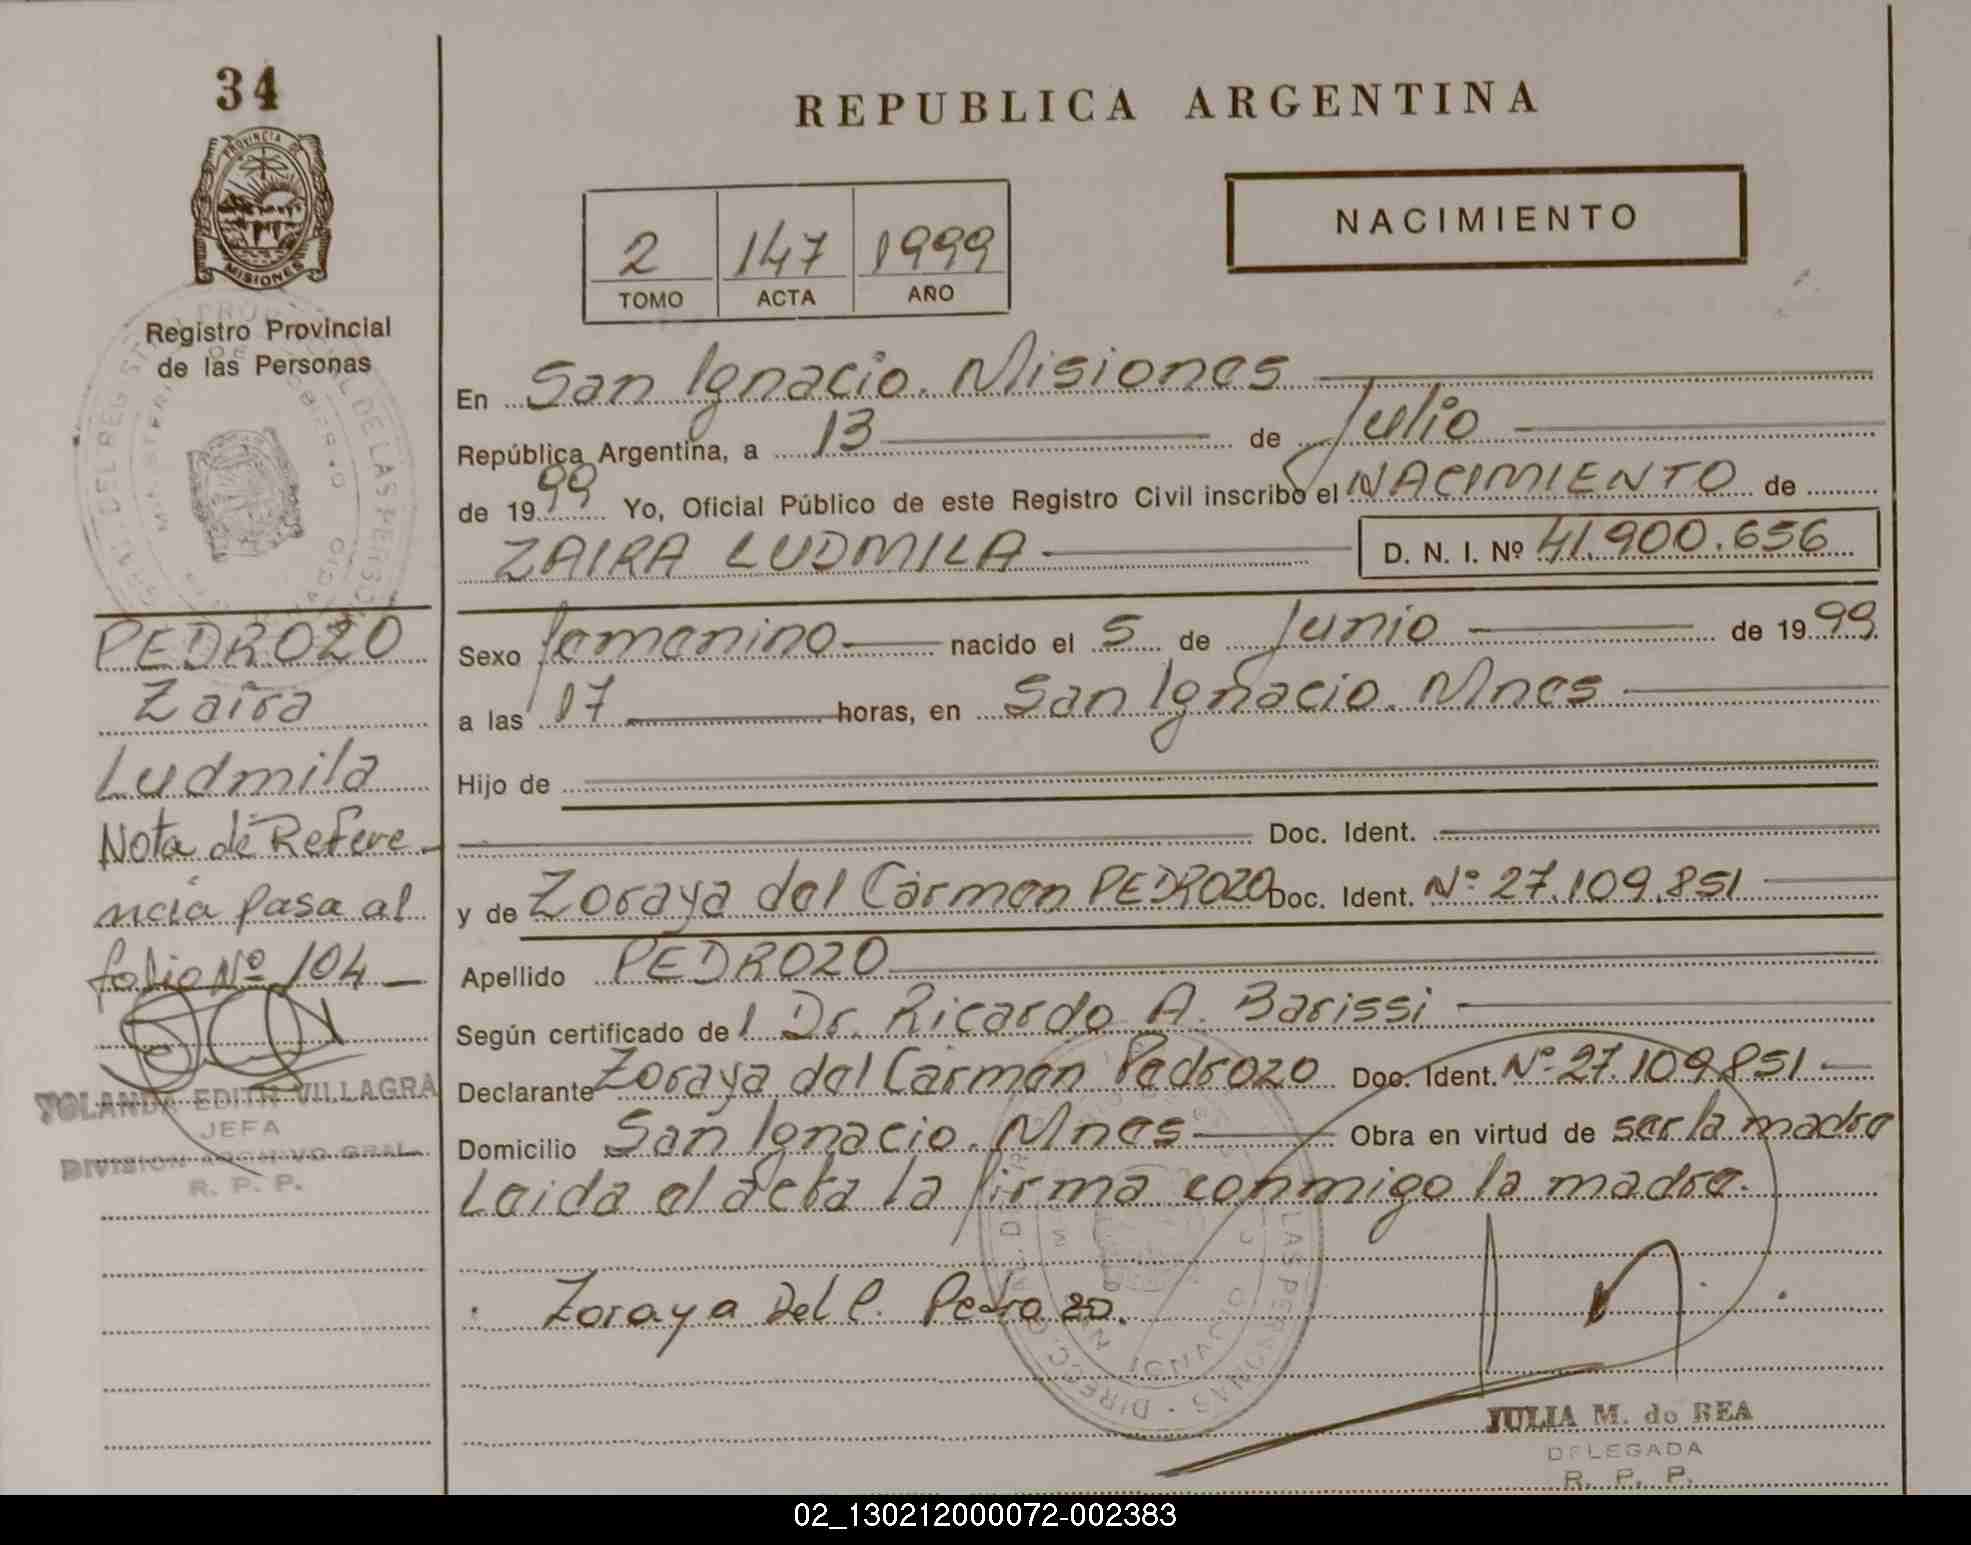 34
PROVINCIA DE
MISIONES
Registro Provincial
de las Personas
PEDROZO
Zaira
Ludmila
Nota de Refere-
ncia pasa al
folio Nº 104 —
YOLANDA EDITH VILLAGRA
JEFA
DIVISION ARCHIVO GRAL.
R. P. P.
REPUBLICA ARGENTINA
NACIMIENTO
2 147 1999
TOMO ACTA AÑO
En San Ignacio. Misiones
República Argentina, a 13 de Julio
de 1999 Yo, Oficial Público de este Registro Civil inscribo el NACIMIENTO de
ZAIRA LUDMILA D. N. I. Nº 41.900.656
Sexo femenino nacido el 5 de Junio de 1999
a las 17 horas, en San Ignacio. Mnes
Hijo de
Doc. Ident.
y de Zoraya del Carmen PEDROZO Doc. Ident. Nº 27.109.851
Apellido PEDROZO
Según certificado del Dr. Ricardo A. Barissi
Declarante Zoraya del Carmen Pedrozo Doc. Ident. Nº 27.109.851
Domicilio San Ignacio. Mnes Obra en virtud de ser la madre
Leida el acta la firma conmigo la madre.
Zoraya Del C. Pedrozo.
JULIA M. do REA
DELEGADA
R. P. P.
02_130212000072-002383